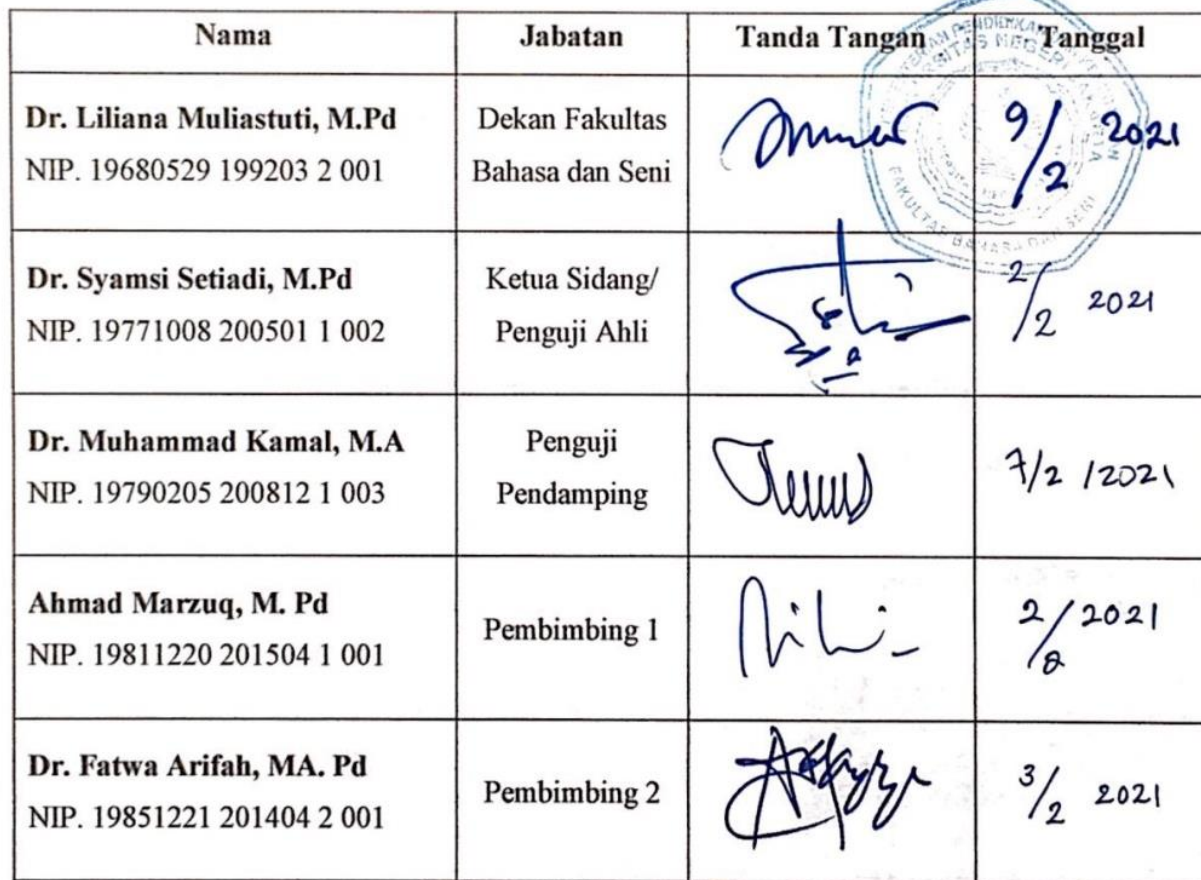 Nama Jabatan Tanda Tangan Tanggal
Dr. Liliana Muliastuti, M.Pd
NIP. 19680529 199203 2 001
Dekan Fakultas
Bahasa dan Seni
9/2 2021
FAKULTAS BAHASA DAN SENI
Dr. Syamsi Setiadi, M.Pd
NIP. 19771008 200501 1 002
Ketua Sidang/
Penguji Ahli
2/2 2021
Dr. Muhammad Kamal, M.A
NIP. 19790205 200812 1 003
Penguji
Pendamping
7/2 /2021
Ahmad Marzuq, M. Pd
NIP. 19811220 201504 1 001
Pembimbing 1
2/2021
Dr. Fatwa Arifah, MA. Pd
NIP. 19851221 201404 2 001
Pembimbing 2
3/2 2021